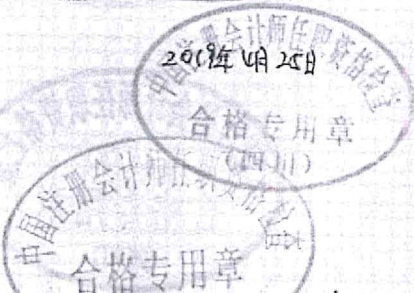 中国注册会计师任职资格检查
2019年4月25日
合格专用章
(四川)
中国注册会计师任职资格检查
合格专用章